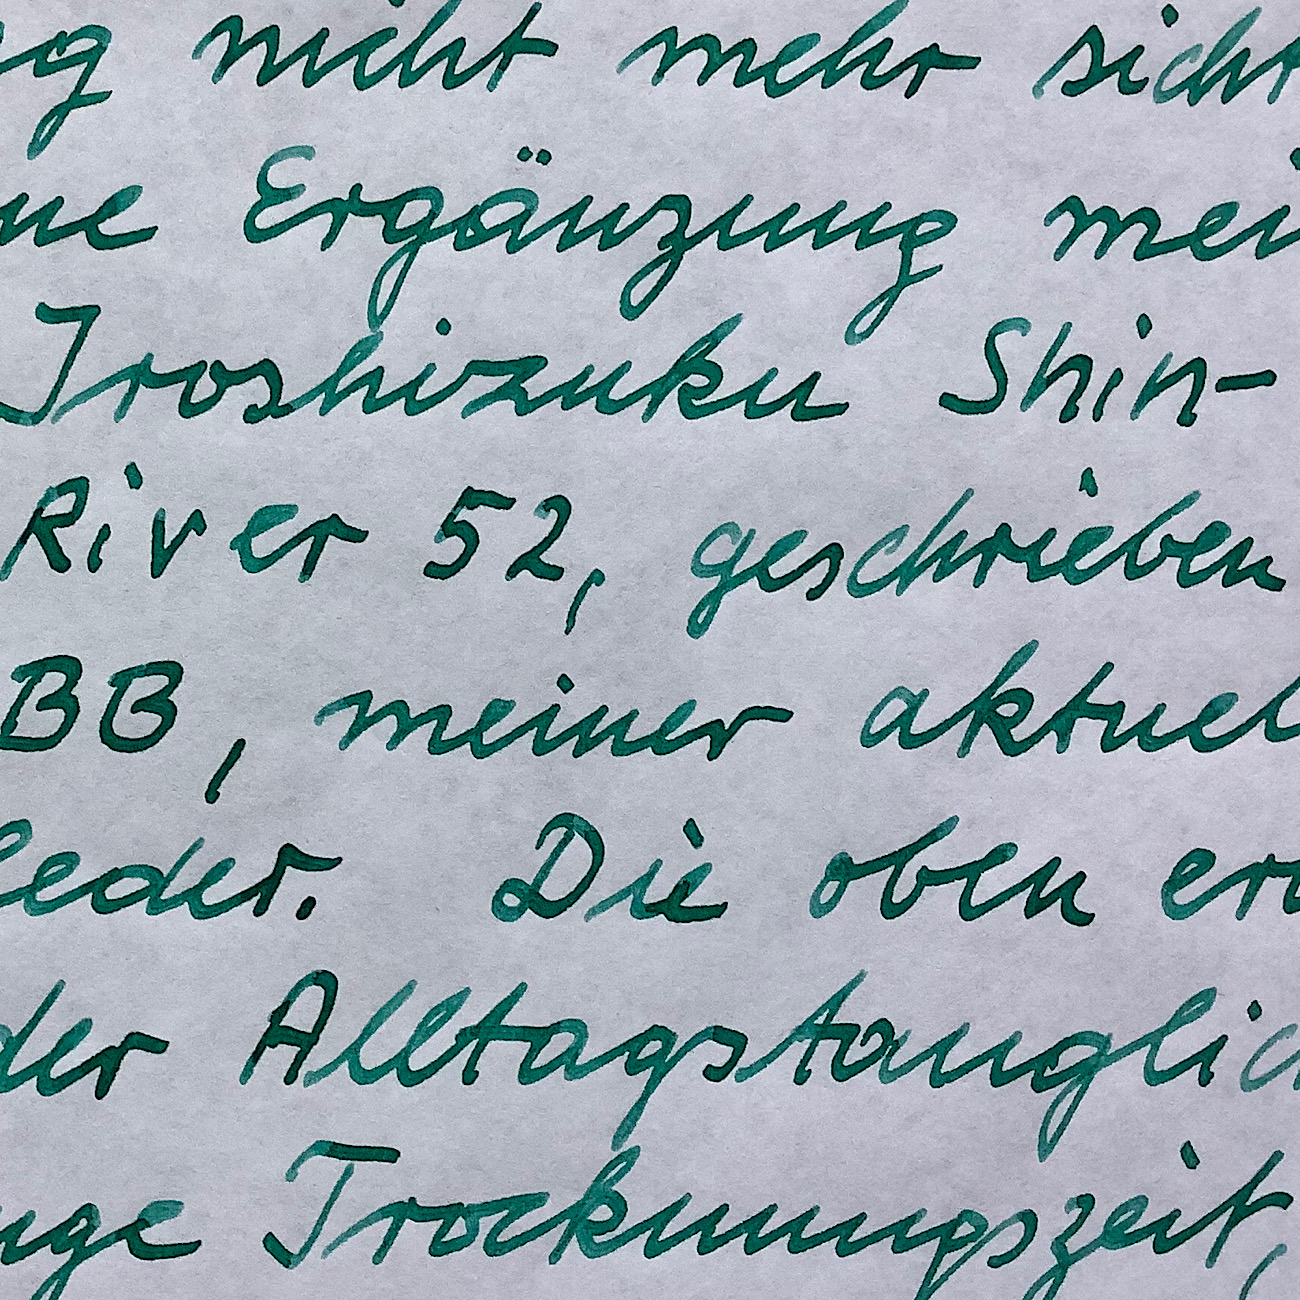 ng nicht mehr sicht
ne Ergänzung mei
Iroshizuku Shin-
River 52, geschrieben
BB, meiner aktuel
leder. Die oben er
der Alltagstauglic
nge Trocknungszeit,